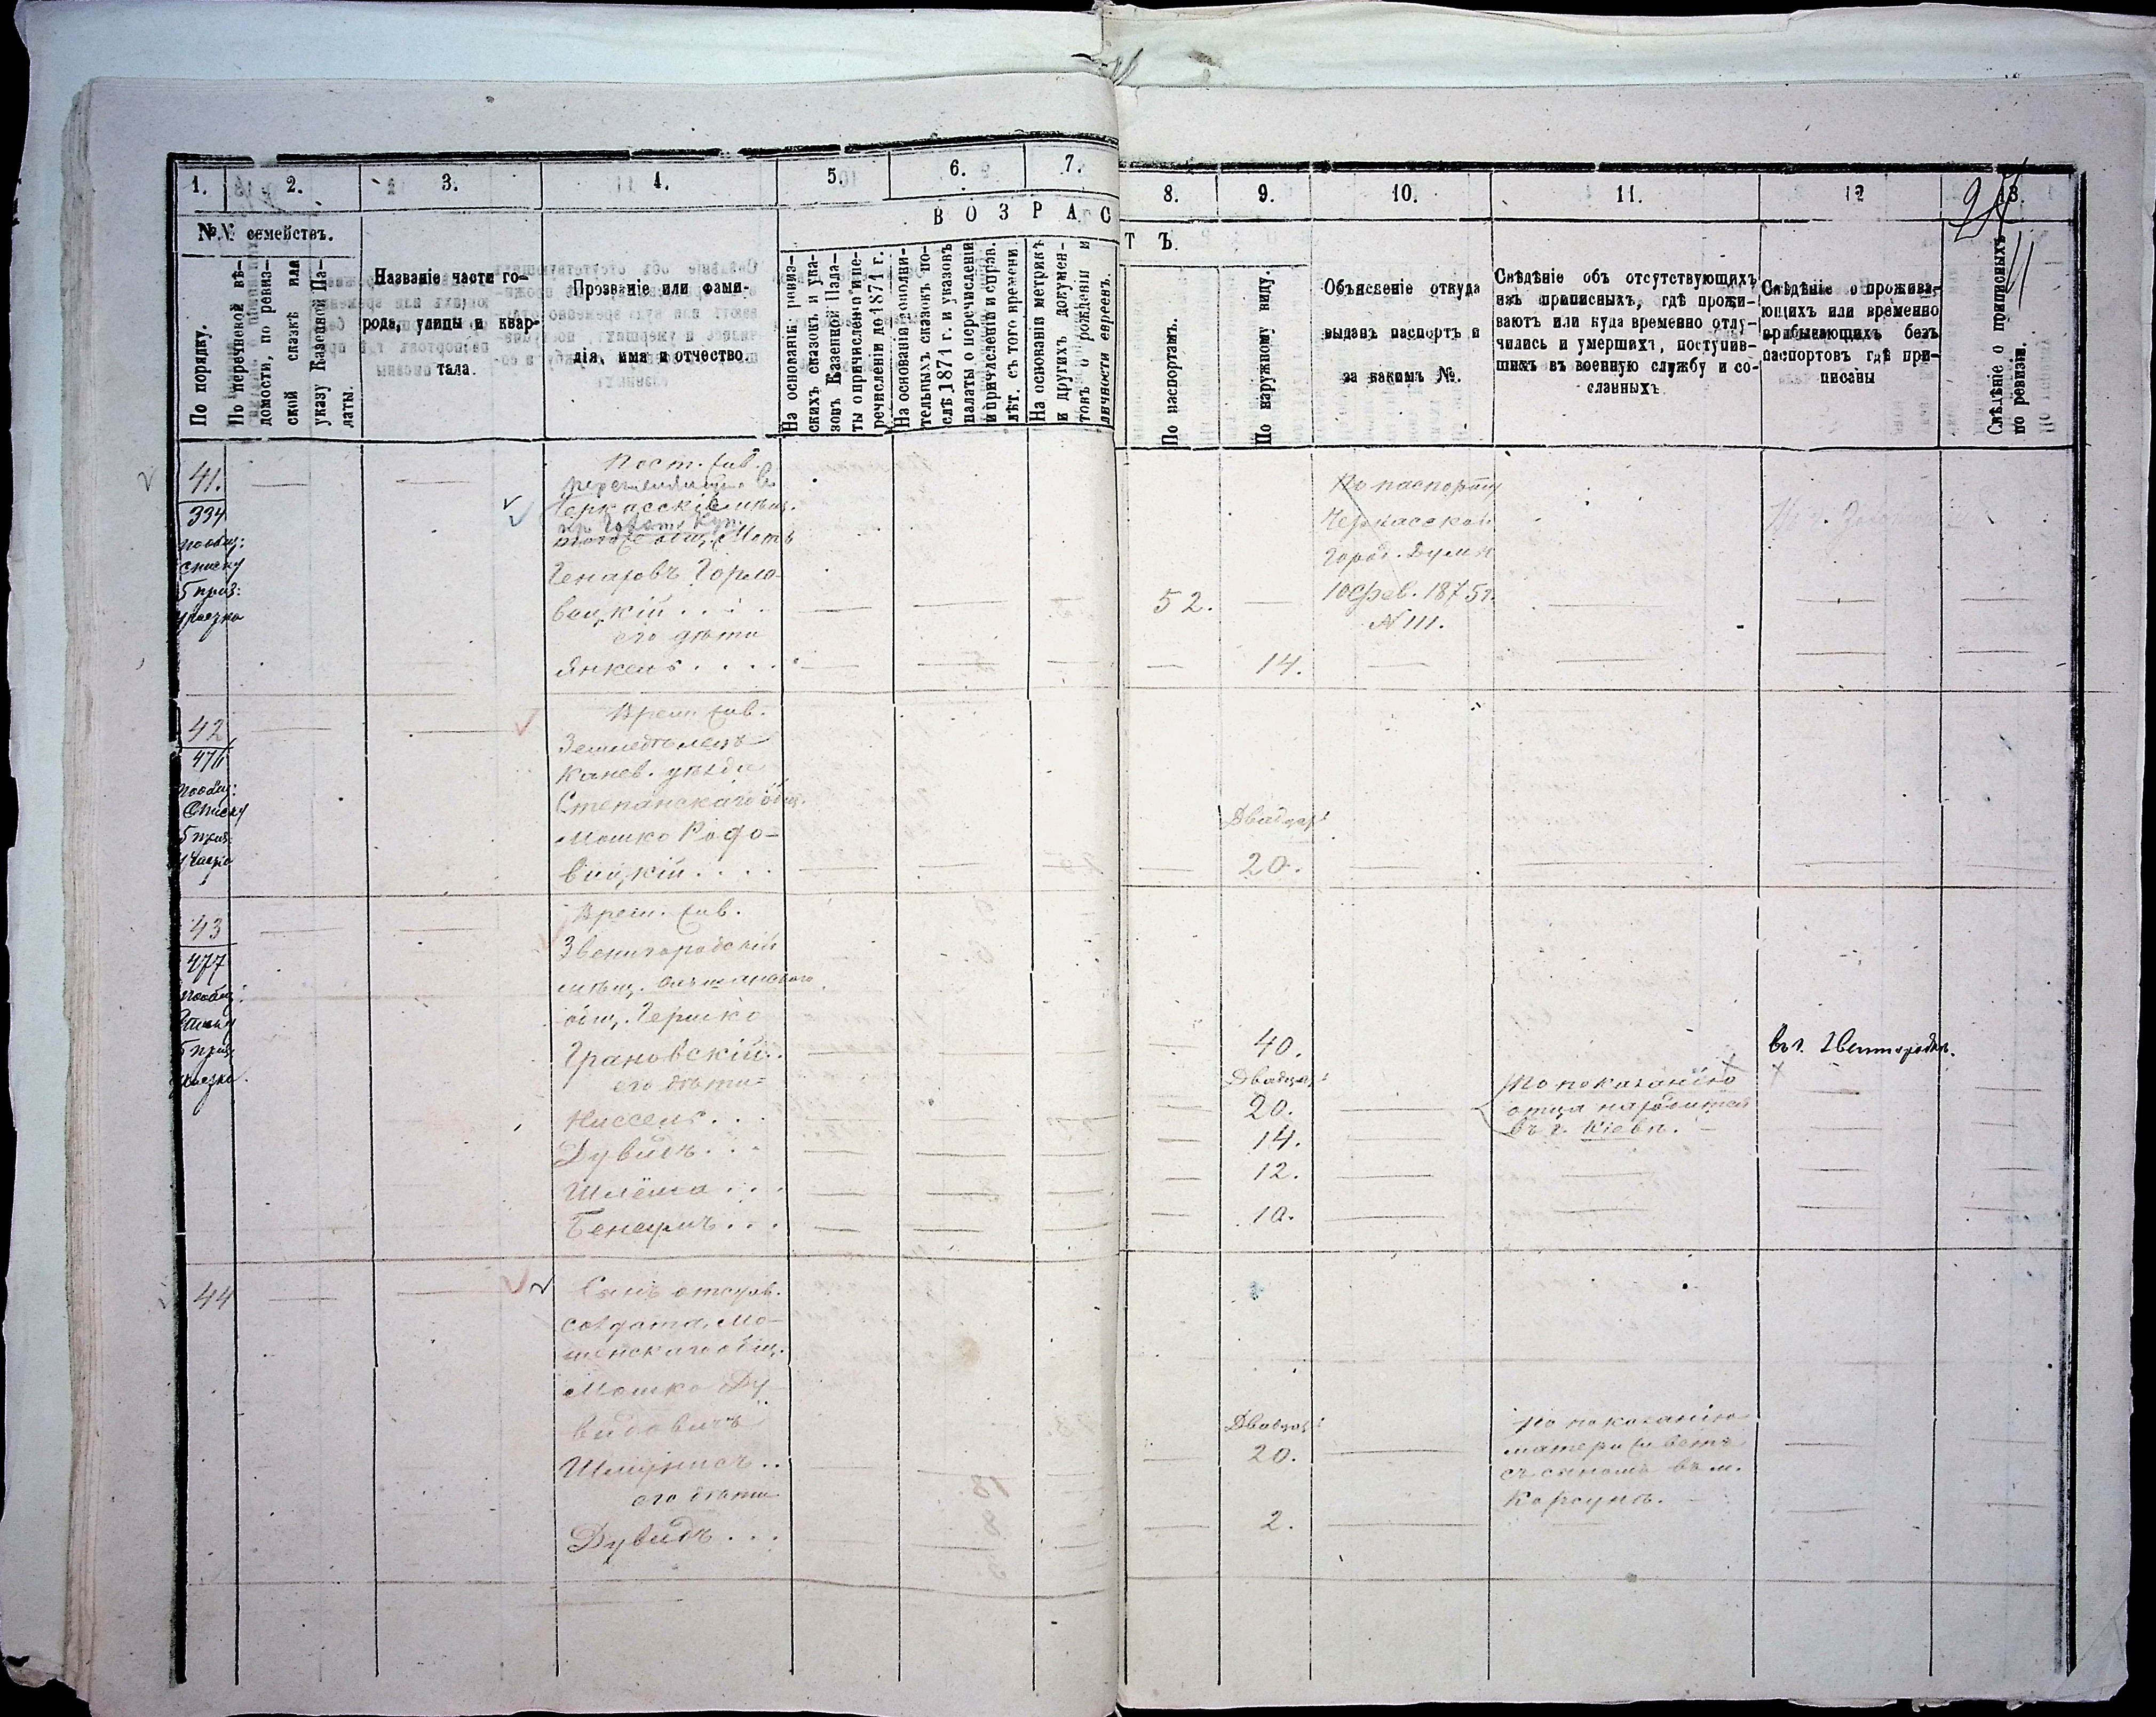 1. 2. 3. 4. 5. 6. 7. 8. 9. 10. 11. 12 13.
№№ семействъ.
В О З Р А С Т Ъ.
По порядку.
По перечневой вѣ-
домости, по ревиз-
ской сказкѣ или
указу Казенной Па-
латы.
Названіе части го-
рода, улицы и квар-
тала.
Прозваніе или фами-
лія, имя и отчество.
На основаніи ревиз-
скихъ сказокъ и ука-
зовъ Казенной Пала-
ты о причисленіи и пе-
речисленіи до 1871 г.
На основаніи дополни-
тельныхъ сказокъ по-
слѣ 1871 г. и указовъ
палаты о перечисленіи
и причисленіи и справ.
лѣт. съ того времени
На основаніи метрикъ
и другихъ докумен-
товъ о рожденіи и
личности евреевъ.
По паспортамъ.
По наружному виду.
Объясненіе откуда
выданъ паспортъ и
за какимъ №.
Свѣдѣніе объ отсутствующихъ
изъ приписныхъ, гдѣ прожи-
ваютъ или куда временно отлу-
чились и умершихъ, поступив-
шихъ въ военную службу и со-
сланныхъ
Свѣдѣніе о прожива-
ющихъ или временно
прибывающихъ безъ
паспортовъ гдѣ при-
писаны
Свѣдѣніе о приписныхъ
по ревизіи.
41.
334
пообщ:
списку
5 приз:
участка
Пост. жив.
Черкасскій мѣщ.
общ. Мотъ
Генаховъ Горло-
вецкій . . .
его дѣти
Янкель . . . .
52.
14.
По паспорту
Черкасской
Город. Думы
10 Фев. 1875 г.
№ 111.
42
476
пообщ:
Списку
5 приз:
участка
Врем. жив.
Земледѣлецъ
Канев. уѣзда
Степанскаго общ.
Мошко Рофо-
вицкій . . . .
Двадцат:
20.
43
477
пообщ:
Списку
5 приз:
участка.
Врем. жив.
Звенигородскій
мѣщ. Ольшанского
общ. Гершко
Грановскій . .
его дѣти
Ниссель . . .
Дувидъ . . .
Шлёма . . .
Бенецыъ . . .
40.
Двадцат:
20.
14.
12.
10.
По показанію
отца находится
въ г. Кіевѣ.
въ г. Звенигородкѣ.
44
Сынъ отстав.
солдата, Мо-
шенскаго общ.
Мошко Ду-
видовичъ
его дѣти
Дувидъ . . .
Двадцат:
20.
2.
По показанію
матери живетъ
съ сыномъ въ м.
Корсунѣ.